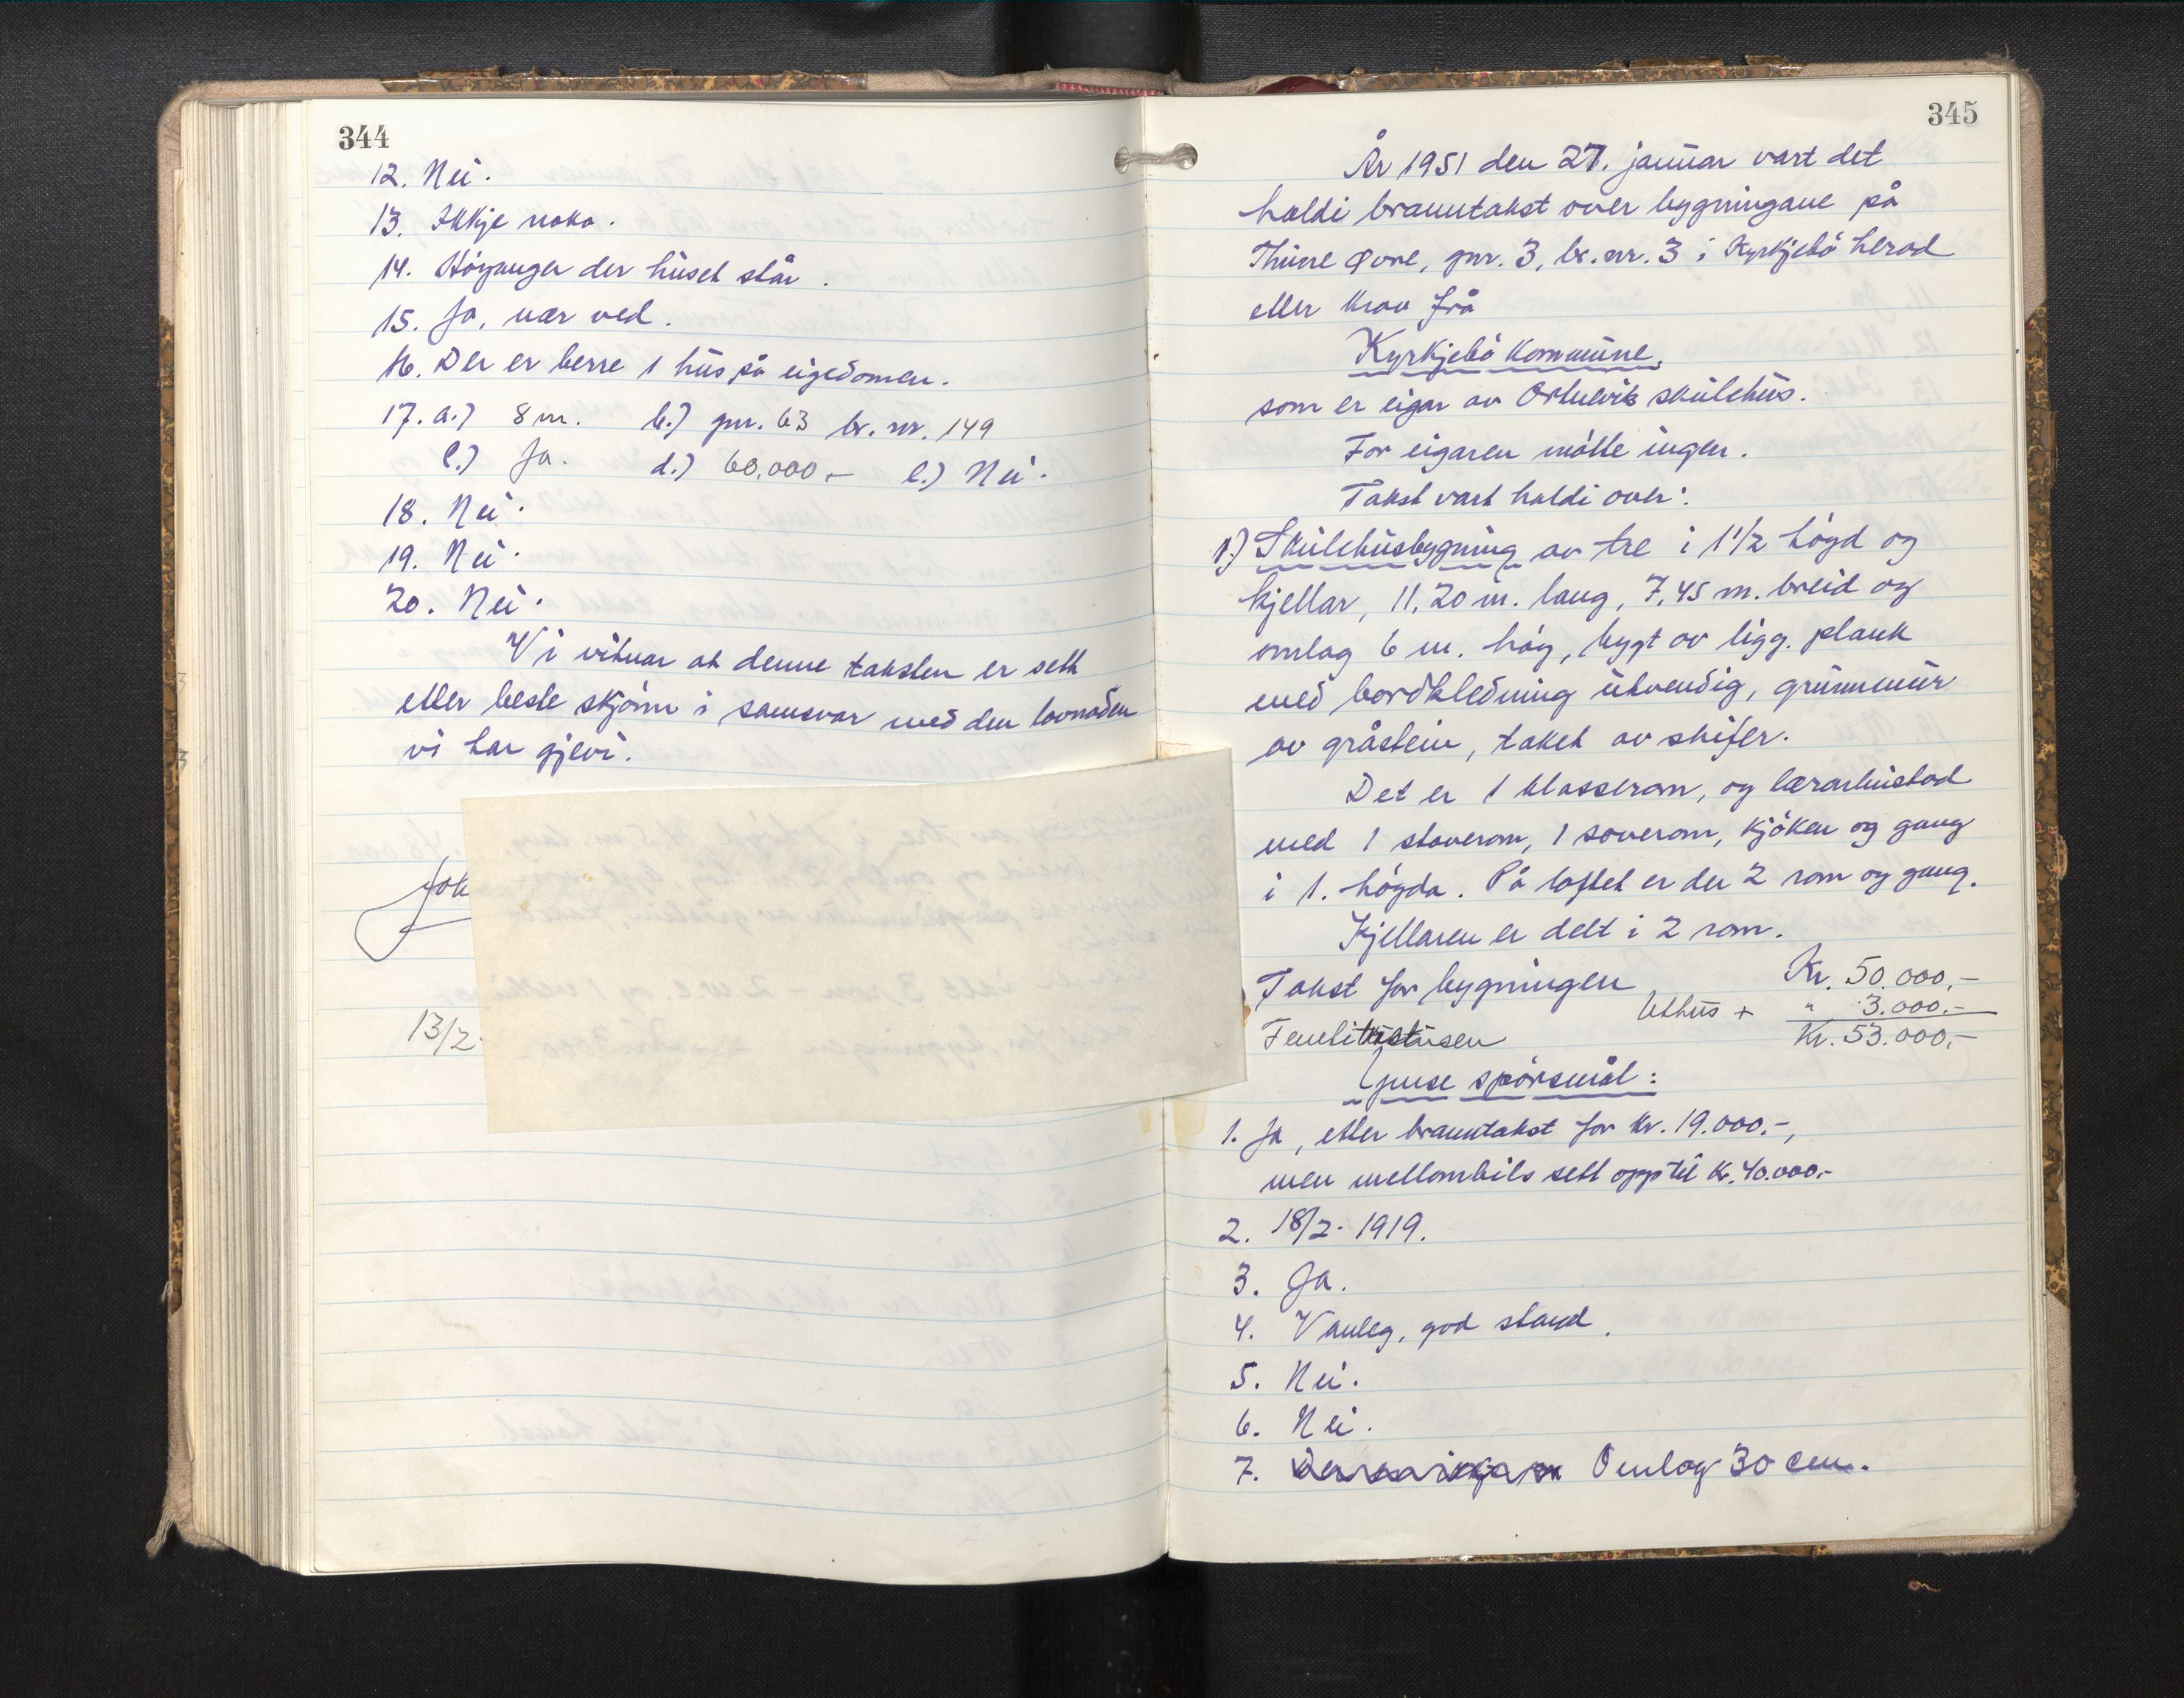 344
12. Nei.
13. Ikkje noko.
14. Höyanger der huset står.
15. Ja, nær ved.
16. Der er berre 1 hus på eigedomen.
17. a.) 8 m. b.) gnr. 63 br. nr. 149
c.) Ja. d.) 60.000,- e.) Nei.
18. Nei.
19. Nei.
20. Nei.
Vi vitnar at denne taksten er sett
etter beste skjönn i samsvar med den lovnaden
vi har gjevi.
Joh
13/2.
345
År 1951 den 27. januar vart det
haldi branntakst over bygningane på
Thune Øvre, gnr. 3, br. nr. 3 i Kyrkjebö herad
etter krav frå
Kyrkjebö kommune,
som er eigar av Ortnevik skulehus.
For eigaren mötte ingen.
Takst vart haldi over:
1.) Skulehusbygning av tre i 1 1/2 högd og
kjellar, 11,20 m. lang, 7,45 m. breid og
omlag 6 m. höy, bygt av ligg. plank
med bordkledning utvendig, grunnmur
av gråstein, taket av skifer.
Det er 1 klasserom, og lærarbustad
med 1 stoverom, 1 soverom, kjöken og gang
i 1. högda. På loftet er der 2 rom og gang.
Kjellaren er delt i 2 rom.
Takst for bygningen Kr. 50.000,-
Uthus + " 3.000.-
Kr. 53.000,-
Ymse spörsmål:
1. Ja, etter branntakst for kr. 19.000.-,
men mellombils sett opp til kr. 40.000.-
2. 18/2. 1919.
3. Ja.
4. Vanleg, god stand.
5. Nei.
6. Nei.
7. Omlag 30 cm.